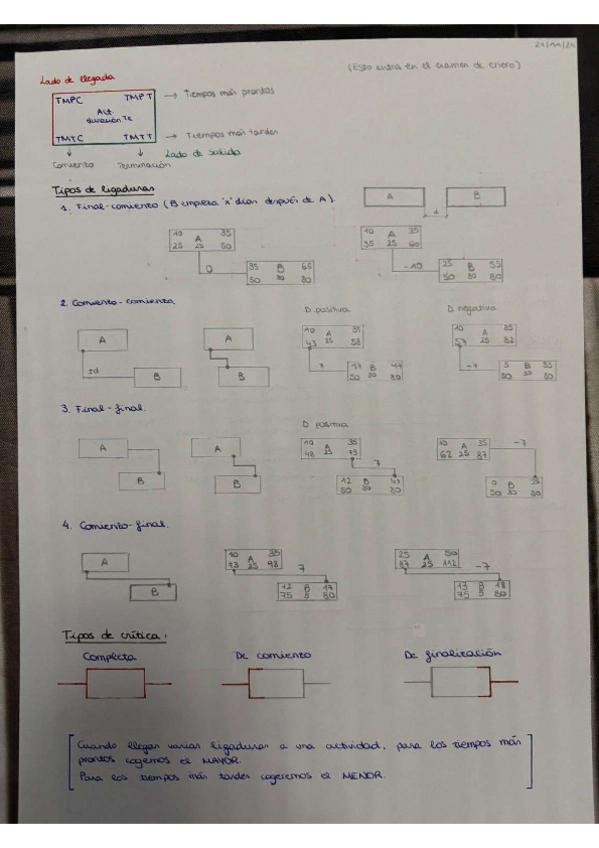 (Esto entra en el examen de enero)
Lado de llegada
TMPC TMPT → Tiempos más prontos
Act.
duración Te
TMTC TMTT → Tiempos más tardes
Lado de salida
Comienzo Terminación
Tipos de ligaduras
A B
1. Final-comienzo (B empieza "x" días después de A).
d
10 A 35
25 25 50
0
35 B 65
50 30 80
10 A 35
35 25 60
-10
25 B 55
50 30 80
2. Comienzo-comienzo
D positiva D negativa
A
±d
B
A
B
10 A 35
43 25
7
17 B 47
50 30 80
10 A 35
57 25 82
-7
B
50 30 80
3. Final-final.
D positiva
A
B
A
B
10 A 35
48 25 73
7
12 B
50 30 80
10 A 35
62 25 87
-7
B
50 30 80
4. Comienzo-final.
A
B
10 A 35
73 25 98
7
12 B 17
75 5 80
25 A 50
87 25 112
-7
13 B 18
75 5 80
Tipos de crítica:
Completa De comienzo De finalización
Cuando llegan varias ligaduras a una actividad, para los tiempos más
prontos cogemos el MAYOR.
Para los tiempos más tardes cogeremos el MENOR.